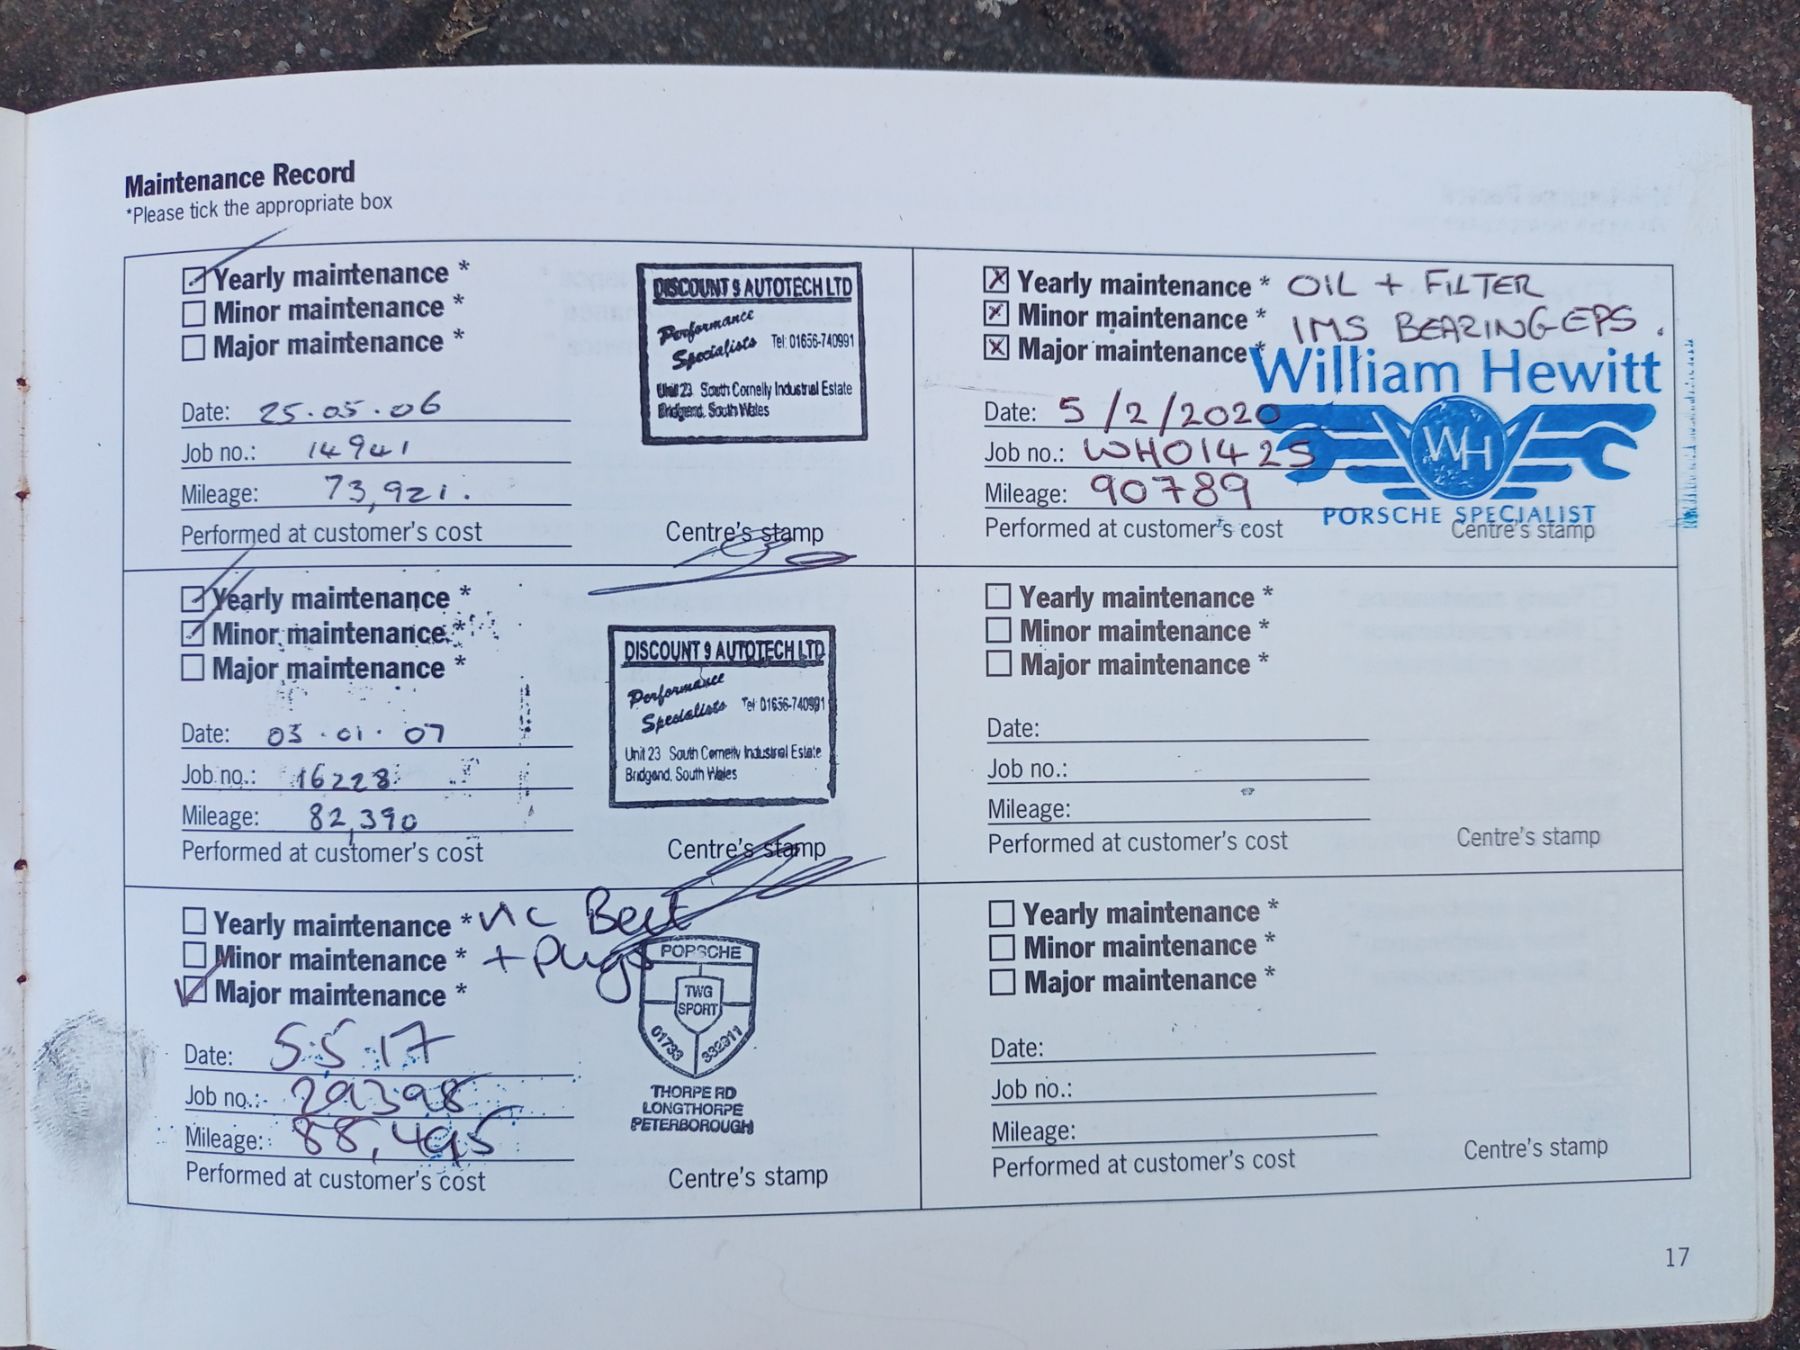 Maintenance Record
*Please tick the appropriate box
Yearly maintenance *
Minor maintenance *
Major maintenance *
Date: 25.05.06
Job no.: 14941
Mileage: 73,921.
Performed at customer's cost
Centre's stamp
DISCOUNT 9 AUTOTECH LTD
Performance
Specialists Tel: 01656-740991
Unit 23 South Cornelly Industrial Estate
Bridgend, South Wales
Yearly maintenance *
Minor maintenance *
Major maintenance *
Date: 03.01.07
Job no.: 16228
Mileage: 82,390
Performed at customer's cost
Centre's stamp
DISCOUNT 9 AUTOTECH LTD
Performance
Specialists Tel: 01656-740991
Unit 23 South Cornelly Industrial Estate
Bridgend, South Wales
Yearly maintenance *
Minor maintenance * + Plugs
Major maintenance *
Date: 5.5.17
Job no.: 29398
Mileage: 88,495
Performed at customer's cost
Centre's stamp
PORSCHE
TWG
SPORT
01733 332911
THORPE RD
LONGTHORPE
PETERBOROUGH
Yearly maintenance * OIL + FILTER
Minor maintenance * IMS BEARING EPS.
Major maintenance *
William Hewitt
WH
PORSCHE SPECIALIST
Date: 5/2/2020
Job no.: WH01425
Mileage: 90789
Performed at customer's cost
Centre's stamp
Yearly maintenance *
Minor maintenance *
Major maintenance *
Date:
Job no.:
Mileage:
Performed at customer's cost
Centre's stamp
Yearly maintenance *
Minor maintenance *
Major maintenance *
Date:
Job no.:
Mileage:
Performed at customer's cost
Centre's stamp
17